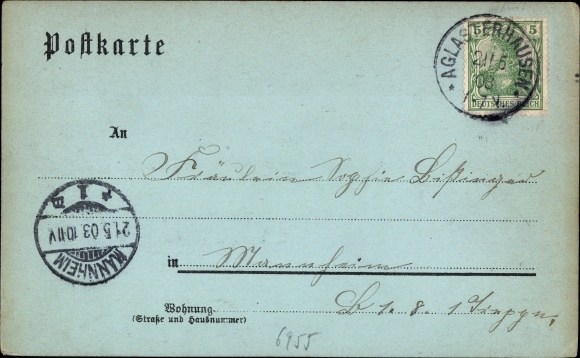 Postkarte
5
5
DEUTSCHES REICH
* AGLASTERHAUSEN *
21.5
03
An
Fräulein Sophie
in Mannheim
B 1. 8. 1 Treppe,
Wohnung
(Straße und Hausnummer)
MANNHEIM
21.5.03.10-11V.
* 1 *
6955